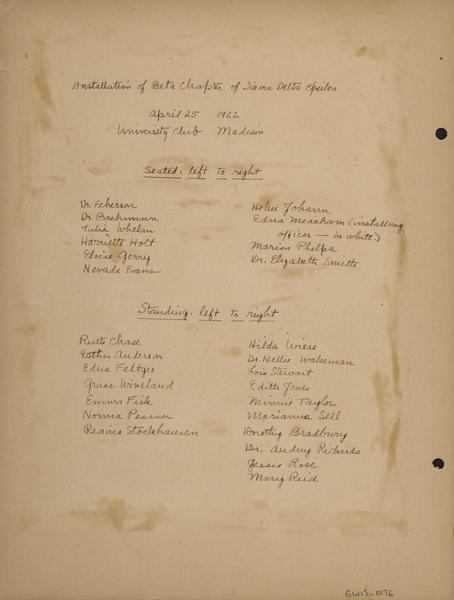 Installation of Beta Chapter of Sigma Delta Epsilon
April 25 1922
University Club Madison
Seated, left to right
Dr. Eeherson
Dr. Bachmann
Julia Whelan
Harriette Holt
Eloise Gerry
Nevada Evans
Helen Johann
Edna Meacham (installing
officer — in white)
Marion Phelps
Dr. Elizabeth Smith
Standing, left to right
Ruth Chase
Esther Anderson
Edna Feltges
Grace Wineland
Emma Fisk
Norma Pearson
Regina Stockhausen
Hilda Wiese
Dr. Nellie Wakeman
Lois Stewart
Edith Jones
Minnie Taylor
Marianna Sell
Dorothy Bradbury
Dr. Audry Richards
Jessie Rose
Mary Reid
GWIS-0176